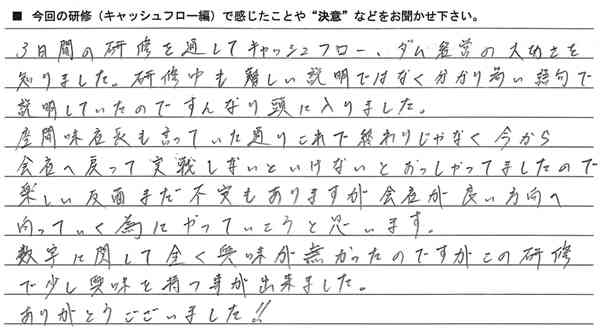 ■ 今回の研修（キャッシュフロー編）で感じたことや“決意”などをお聞かせ下さい。
3日間の研修を通してキャッシュフロー、ダム経営の大切さを
知りました。研修中も難しい説明ではなく分かり易い語句で
説明していたのですんなり頭に入りました。
座間味社長も言っていた通りこれで終わりじゃなく今から
会社へ戻って実戦しないといけないとおっしゃってましたので
楽しい反面まだ不安もありますが会社が良い方向へ
向っていく為にやっていこうと思います。
数字に関して全く興味が無かったのですがこの研修
で少し興味を持つ事が出来ました。
ありがとうございました!!